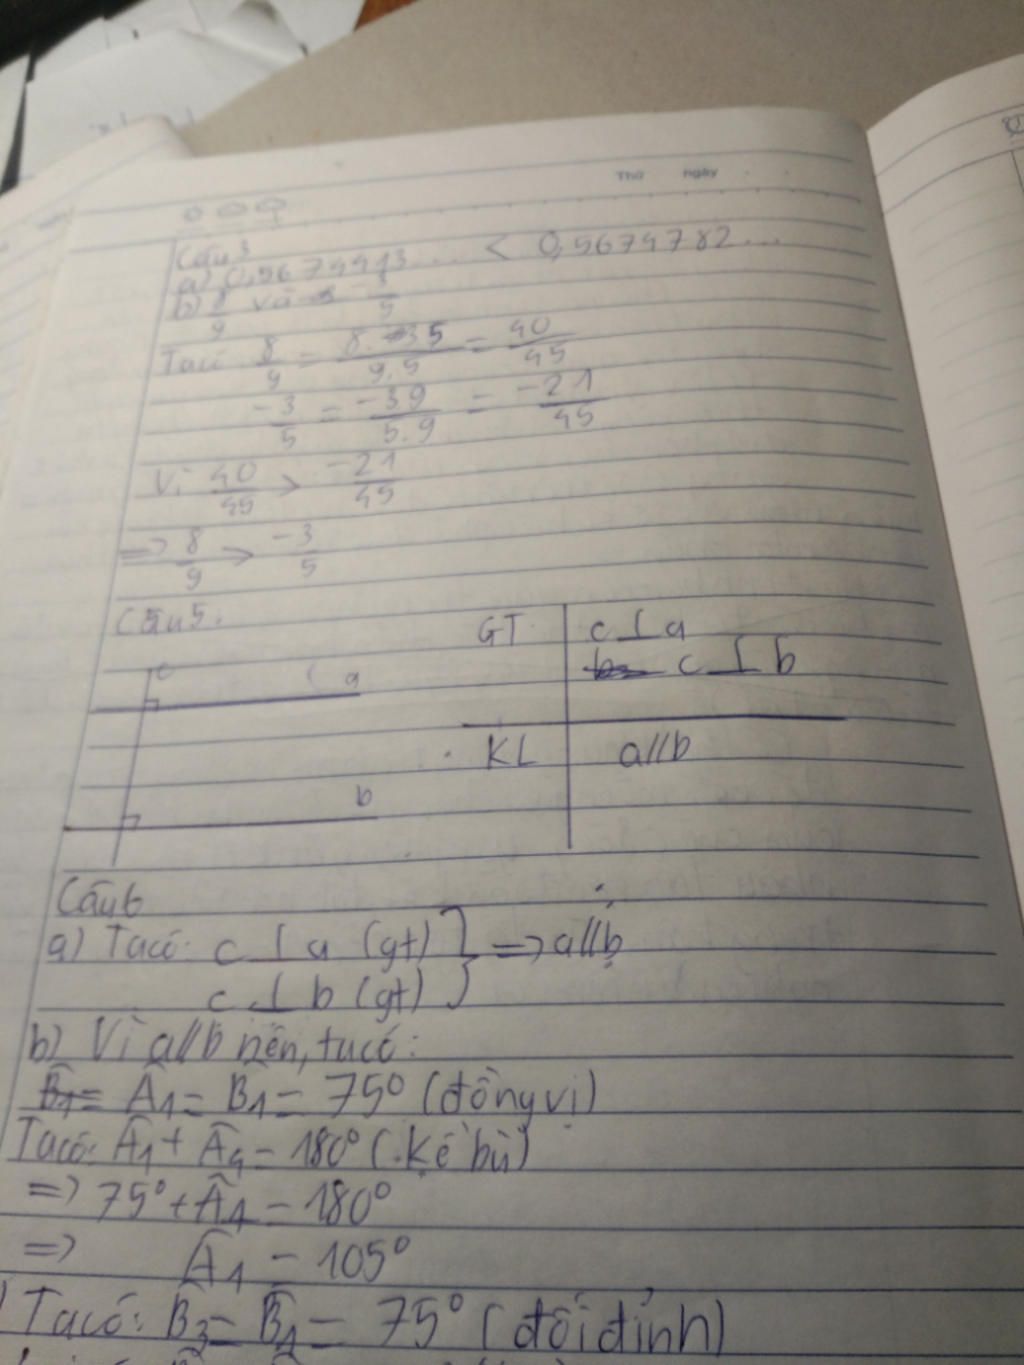 Thứ ngày
Câu 3
a) 0,5674913... < 0,5674782...
b) 8/9 và -3/5
Ta có 8/9 = 8.5/9.5 = 40/45
-3/5 = -39/5.9 = -21/45
Vì 40/45 > -21/45
=> 8/9 > -3/5
Câu 5.
GT c ⊥ a
c ⊥ b
KL a//b
c a
b
Câu 6
a) Ta có: c ⊥ a (gt) } => a//b
c ⊥ b (gt)
b) Vì a//b nên, ta có:
Â1 = B̂1 = 75° (đồng vị)
Ta có: Â1 + Â4 = 180° (kề bù)
=> 75° + Â1 = 180°
=> Â1 = 105°
) Ta có: B̂3 = B̂1 = 75° (đối đỉnh)